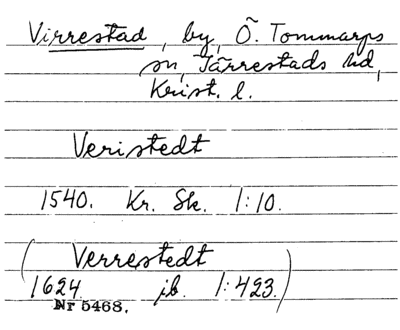 Virrestad, by, Ö. Tommarps
sn, Järrestads hd,
Krist. l.
Veristedt
1540. Kr. Sk. 1:10.
(Verrestedt
1624 jb. 1:423.)
Nr 5468.